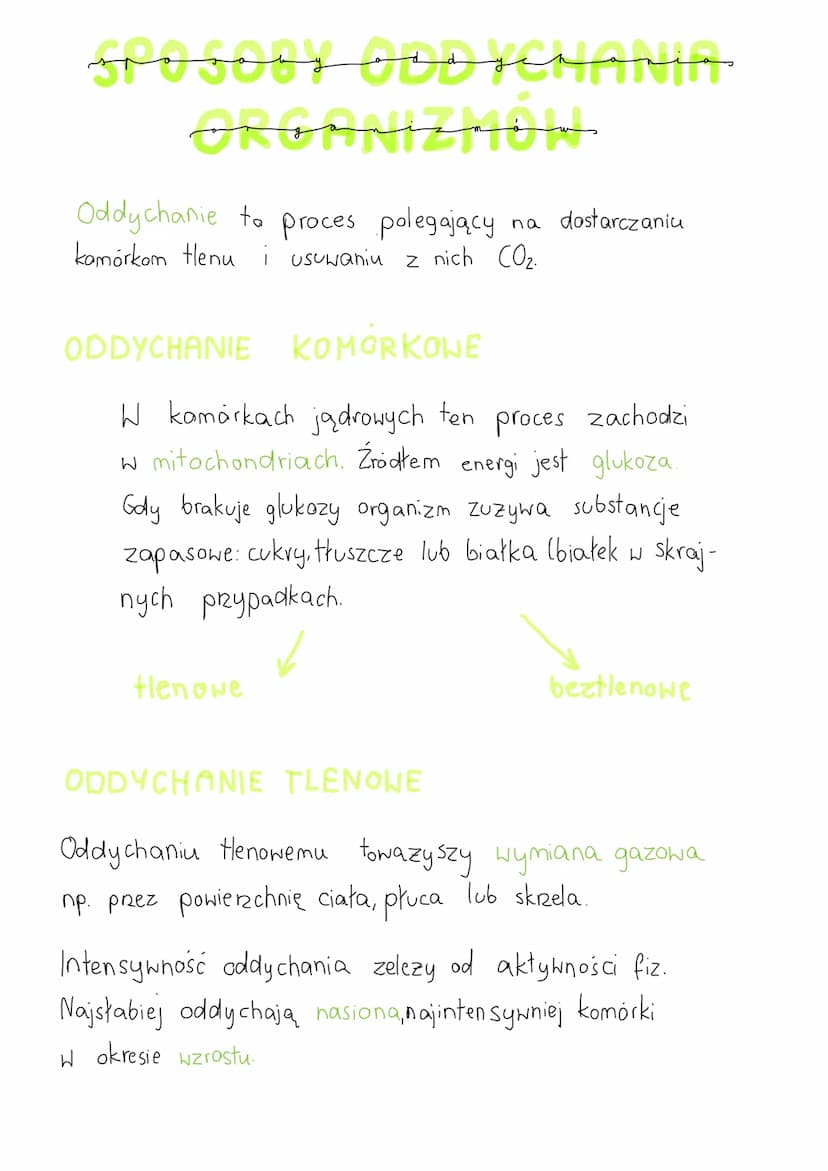 SPOSOBY ODDYCHANIA
ORGANIZMÓW
Oddychanie to proces polegający na dostarczaniu
komórkom tlenu i usuwaniu z nich CO₂.
ODDYCHANIE KOMÓRKOWE
W komórkach jądrowych ten proces zachodzi
w mitochondriach. Źródłem energi jest glukoza.
Gdy brakuje glukozy organizm zużywa substancje
zapasowe: cukry, tłuszcze lub białka (białek w skraj-
nych przypadkach.
tlenowe beztlenowe
ODDYCHANIE TLENOWE
Oddychaniu tlenowemu towazyszy wymiana gazowa
np. przez powierzchnię ciała, płuca lub skrzela.
Intensywność oddychania zelezy od aktywności fiz.
Najsłabiej oddychają nasiona, najintensywniej komórki
w okresie wzrostu.